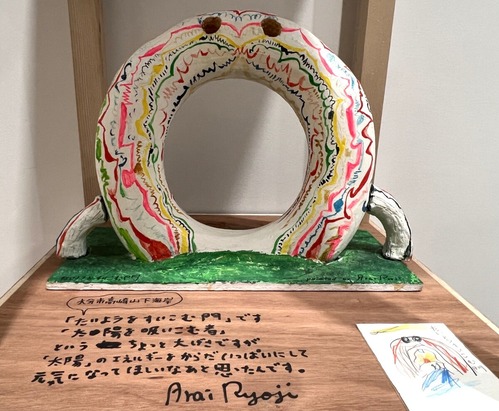 大分市高崎山下海岸
「たいようをすいこむ門」です
「太陽を吸いこむ者」
という ちょっと大げさですが
「太陽」のエネルギーをからだいっぱいにして
元気になってほしいなあと思ったんです。
Arai Ryoji